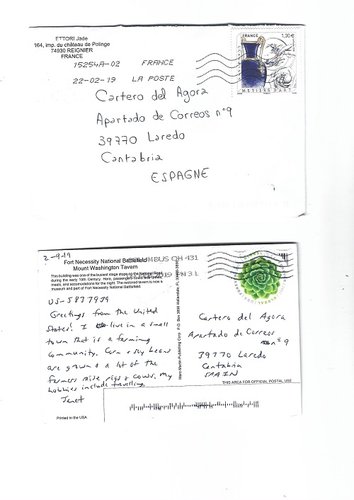 ETTORI Jade
164, imp. du château de Polinge
74930 REIGNIER
FRANCE
15254A-02 FRANCE
22-02-19 LA POSTE
FRANCE 1,30€
MÉTIERS D'ART
Cartero del Agora
Apartado de Correos nº9
39770 Laredo
Cantabria
ESPAGNE
2-9-19
Fort Necessity National Battlefield
Mount Washington Tavern
This building was one of the busiest stage stops on the National Road
during the early 19th Century. Here, passengers found
meals, and accommodations for the night. The restored tavern is now a
museum and part of Fort Necessity National Battlefield.
COLUMBUS OH 431
2019 PM 3 L
US-5877939
Greetings from the United
States! I live in a small
town that is a farming
community. Corn & soy beans
are grown & a lot of the
farmers raise pigs & cows. My
hobbies include travelling.
Janet
Cartero del Agora
Apartado de Correos
nº 9
39770 Laredo
Cantabria
SPAIN
THIS AREA FOR OFFICIAL POSTAL USE
Printed in the USA